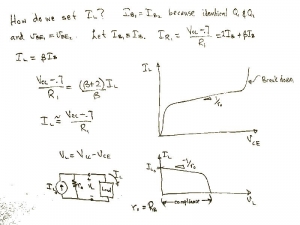 How do we set I_L? I_B1 = I_B2 because identical Q1 & Q2
and V_BE1 = V_BE2. Let I_B1 ≡ I_B. I_R1 = (V_CC - .7)/R_1 = 2I_B + βI_B
I_L = βI_B
(V_CC - .7)/R_1 = ((β+2)/β) I_L
I_L ≅ (V_CC - .7)/R_1
I_L
Breakdown
1/r_o
V_CE
V_L = V_CC - V_CE
I_L
r_o
V_L
Load
I_L
I_Lo
-1/r_o
compliance
V_L